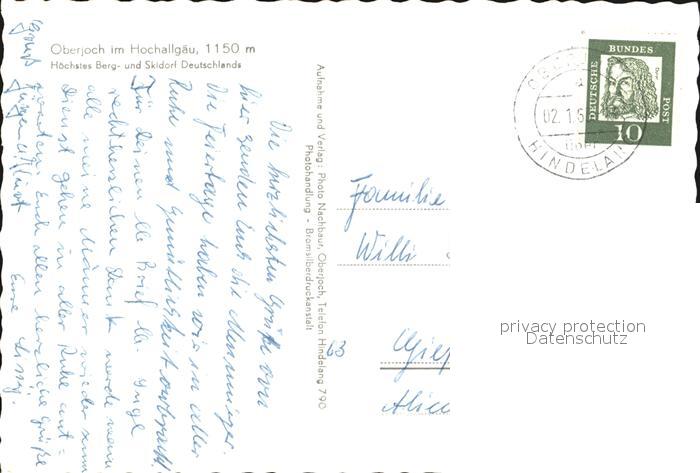 Oberjoch im Hochallgäu, 1150 m
Höchstes Berg- und Skidorf Deutschlands
Die herzlichsten Grüße von
hier senden Euch die
Die Feiertage haben wir in aller
Ruhe und Gemütlichkeit verbracht.
Für Deinen lb. Brief lb. Inge
recht herzlichen Dank werde wenn
alle meine Männer wieder zum
Dienst gehen in aller Ruhe ant-
Euch allen herzliche Grüße
Eure
Gruß
Aufnahme und Verlag: Photo Nachbaur, Oberjoch, Telefon Hindelang 790
Photohandlung - Bromsilberdruckanstalt
63
DEUTSCHE BUNDES POST
Dürer
10
02.1.6
HINDELANG
Familie
Willi
privacy protection
Datenschutz